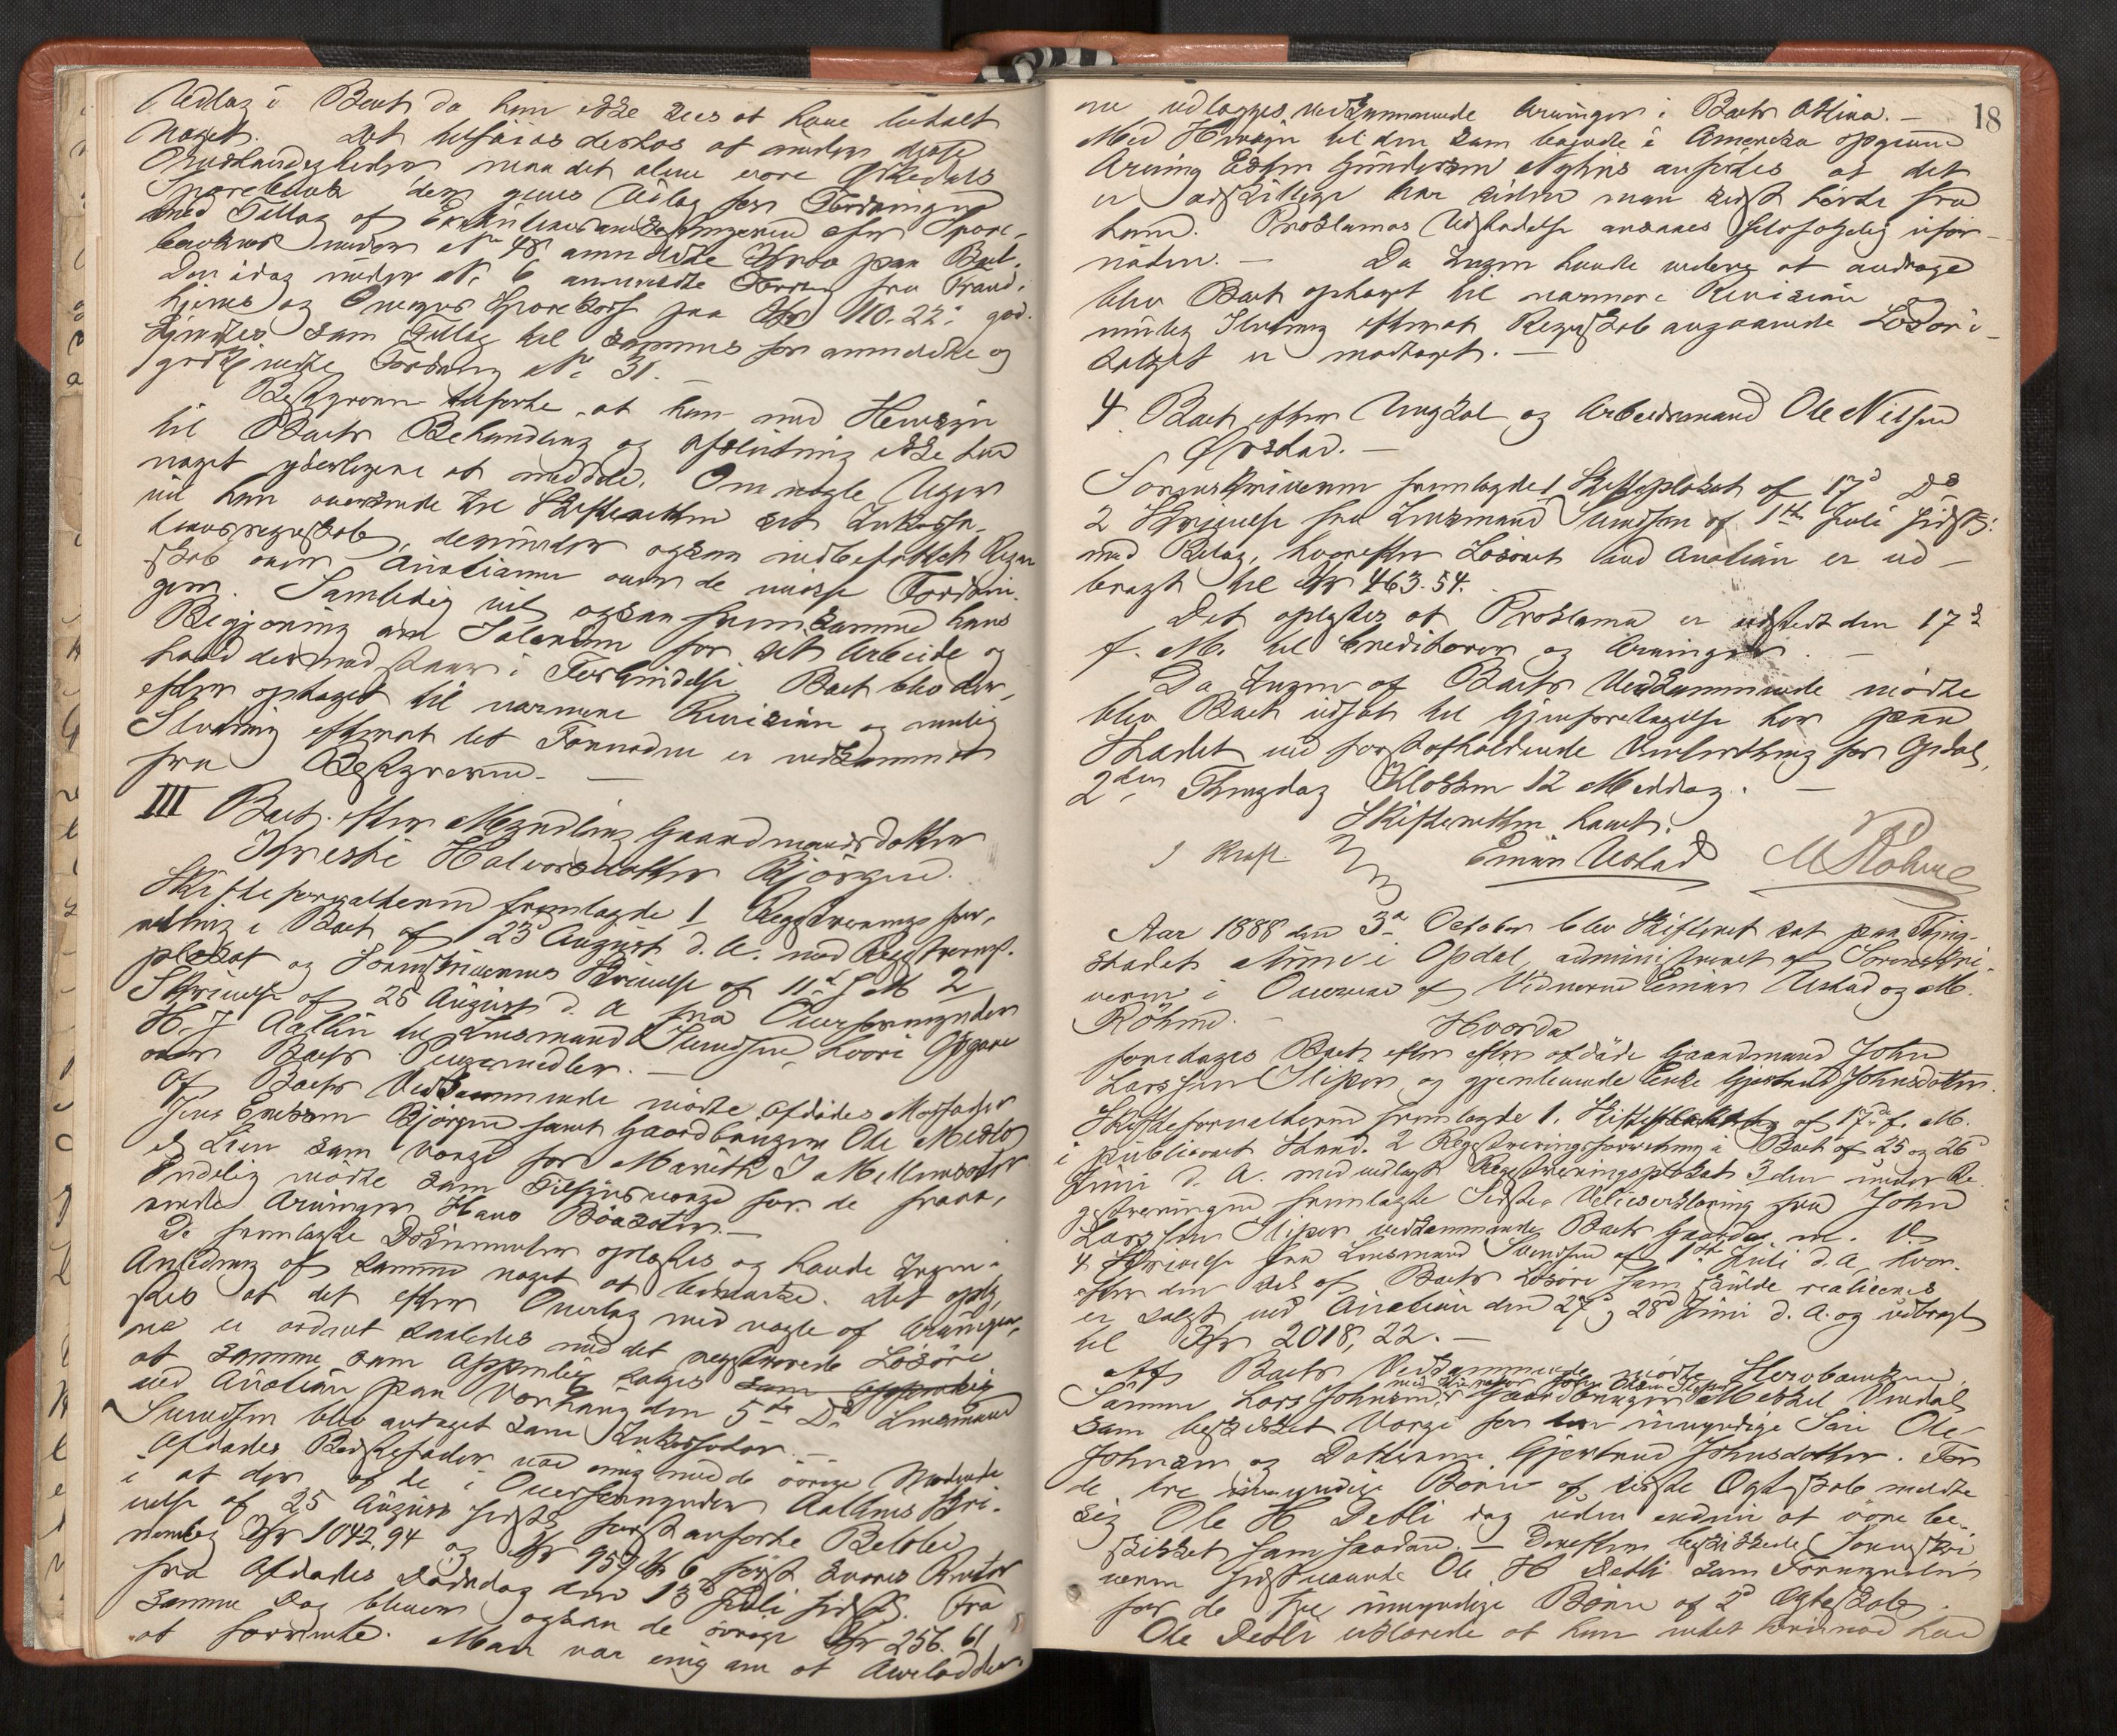 Udlæg i Boet da han ikke sees at have betalt
noget. Det tilføies desløs at under disse
Omstændigheder maa det alene være Orkedals
Sparebank der gives Udlæg for Fordringen
med Tillæg af
bankens under No 48 anmeldte Krav paa Boet.
Den idag under No 6 anmeldte Fordring fra Trond-
hjems og Omegns paa Kr 110.22 god-
kjendtes som Tillæg til sammes før anmeldte og
godkjendte Fordring No 31.
Bestyreren tilførte, at han med Hensyn
til Boets Behandling og Afslutning ikke har
noget yderligere at meddele. Om nogle Uger
vil han oversende til Skifteretten sit Inkassa-
tionsregnskab, derunder ogsaa indbefattet Regn-
skab over Auctionen over de uvisse Fordrin-
ger. Samtidig vil ogsaa fremkomme hans
Begjæring om Salær for sit Arbeide og
hvad dermed staar i Forbindelse. Boet blev der-
efter optaget til nærmere Revision og mulig
Slutning efterat det Fornødne er indkommet
fra Bestyreren. —
III Boet efter Myndling Gaardmandsdatter
Kjersti Halvorsdatter Bjørgen.
Skifteforvalteren fremlagde 1 Registreringsfor-
retning i Boet af 23 August d. A. med Registrerings-
plakat og Sorenskriverens Skrivelse af 11te f. M. 2
Skrivelse af 25 August d. A. fra Overformynder
H. J. Aalbu til Lensmand Svendsen, hvori Opgave
over Boets Pengemidler. —
Af Boets Vedkommende mødte Afdødes Morfader
Jens Bjørgen samt Gaardbruger Ole
Lien som Værge for Marith J
Endelig mødte som Tilsynsværge for de fravæ-
rende Arvinger Hans
De fremlagte Dokumenter oplæstes og havde Ingen i
Anledning af samme noget at bemærke. Det oply-
stes at det efter Overlæg med nogle af Arvinger-
ne er ordnet saaledes med det registrerede Løsøre
at samme som sælges
ved Auction paa Vorhaug den 5te Ds. Lensmand
Svendsen blev antaget som Inkassator. —
Afdødes Bedstefader var enig med de øvrige Mødende
i at der af de i Overformynder Aalbus Skri-
velse af 25 August sidstl. først anførte Beløb
nemlig Kr 1042,94 og Kr 957,06 først svares Renter
fra Afdødes Dødsdag den 13 Juli sidstl. Fra
samme Dag bliver ogsaa de øvrige Kr 256.61
at forrente. Man var enig om at
18
nu udlægges vedkommende Arvinger i Boets Aktiva. —
Med Hensyn til den som boende i Amerika opgivne
Arving Esten Gundersen anførtes at det
er adskillige Aar siden man sidst hørte fra
ham. Proklamas Udstedelse ansees følgelig ufor-
nøden. — Da Ingen havde videre at andrage
blev Boet optaget til nærmere Revision og
mulig Slutning efterat Regnskab angaaende Løsøre-
salget er modtaget. —
4. Boet efter Ungkarl og Arbeidsmand Ole Nilsen
Ørstad. —
Sorenskriveren fremlagde 1 Skifteplakat af 17d Ds
2 Skrivelse fra Lensmand Svendsen af 1ste Juli sidstl.
med Bilag, hvorefter Løsøret ved Auction er ud-
bragt til Kr 463.54.
Det oplystes at Proklama er udstedt den 17d
f. M. til Creditorer og Arvinger. —
Da Ingen af Boets Vedkommende mødte
blev Boet udsat til Gjenforetagelse her paa
Stedet ved førstafholdende for Opdal,
2den Thingdag Klokken 12 Middag. —
Skifteretten hævet.
J Kraft Einar Ustad M Röhme
Aar 1888 den 3die October blev Skifteret sat paa Thing-
stedet Aune i Opdal, administreret af Sorenskri-
veren i Overvær af Vidnerne Einar Ustad og M.
Röhme. —
Hvorda
foretages Boet efter afdøde Gaardmand John
Larssen Sliper og gjenlevende Enke Gjertrud Johnsdatter.
Skifteforvalteren fremlagde 1. Skifteplakat af 17de f. M.
i publiceret Stand. 2 Registreringsforretning i Boet af 25 og 26
Juni d. A. med vedlagt Registreringsplakat 3 den under Re-
gistreringen fremlagte Erklæring fra John
Larssen Sliper vedkommende Boets Gaarde m. V.
4 Skrivelse fra Lensmand Svendsen af 1ste Juli d. A. hvor-
efter den Del af Boets Løsøre som skulde realiseres
er solgt ved Auction den 27 og 28d Juni d. A. og udbragt
til Kr 2018,22. —
Af Boets Vedkommende mødte
Sønnen Lars Johnsen, Gaardbruger Mikkel Vindal
som beskikket Værge for umyndige Søn Ole
Johnsen og Datteren Gjertrud Johnsdatter. For
de tre umyndige Børn af sidste Ægteskab meldte
sig Ole H Detli dog uden endnu at være be-
skikket som saadan. — Derefter beskikkede Sorenskri-
veren sidstnævnte Ole H Detli som Formynder
for de tre umyndige Børn af 2d Ægteskab.
Ole Detli erklærede at han intet herimod har